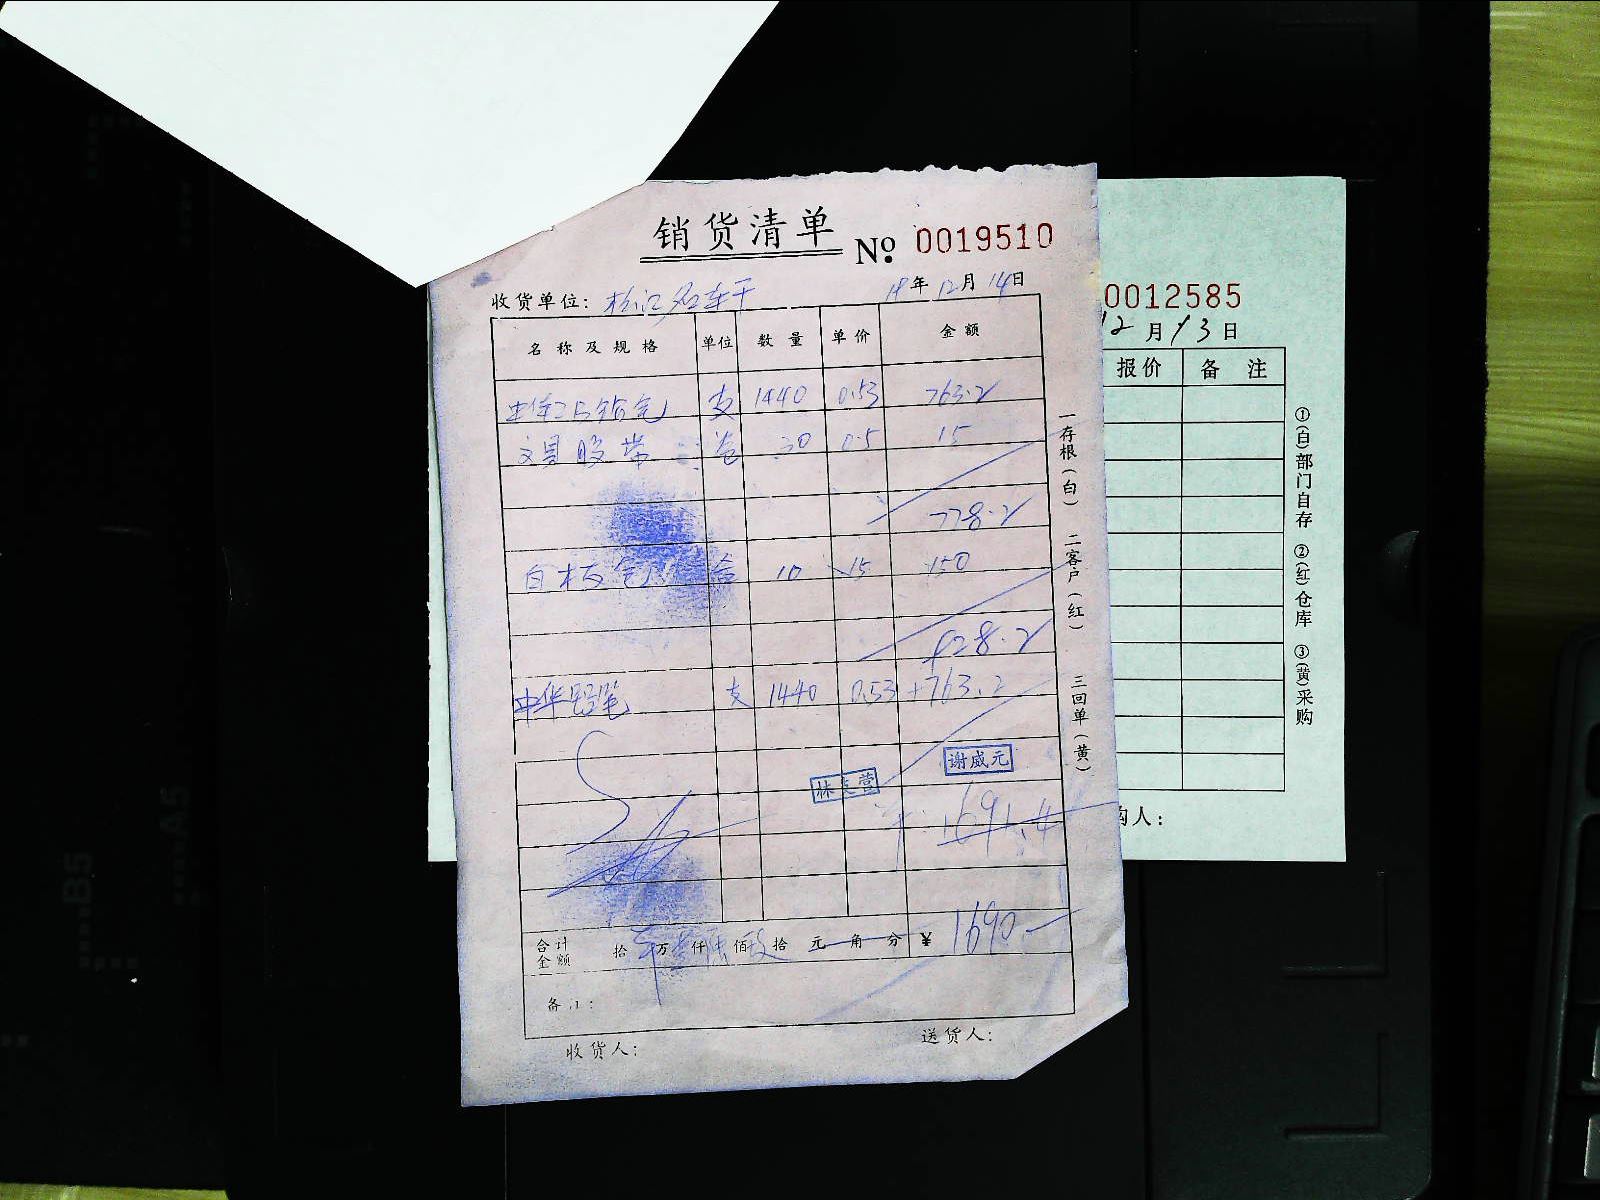 销货清单 № 0019510
收货单位: 18年12月14日
名称及规格 单位 数量 单价 金额
支 1440 0.53 763.2
文具胶带 卷 30 0.5 15
778.2
白板笔 盒 10 15 150
928.2
中华铅笔 支 1440 0.53 +763.2
谢威元
林英营
1691.4
合计金额 拾 万 仟 佰 拾 元 角 分 ¥ 1690.—
备注:
收货人: 送货人:
一存根(白) 二客户(红) 三回单(黄)
0012585
12月13日
报价 备注
购人:
①(白)部门自存 ②(红)仓库 ③(黄)采购
B5
A5